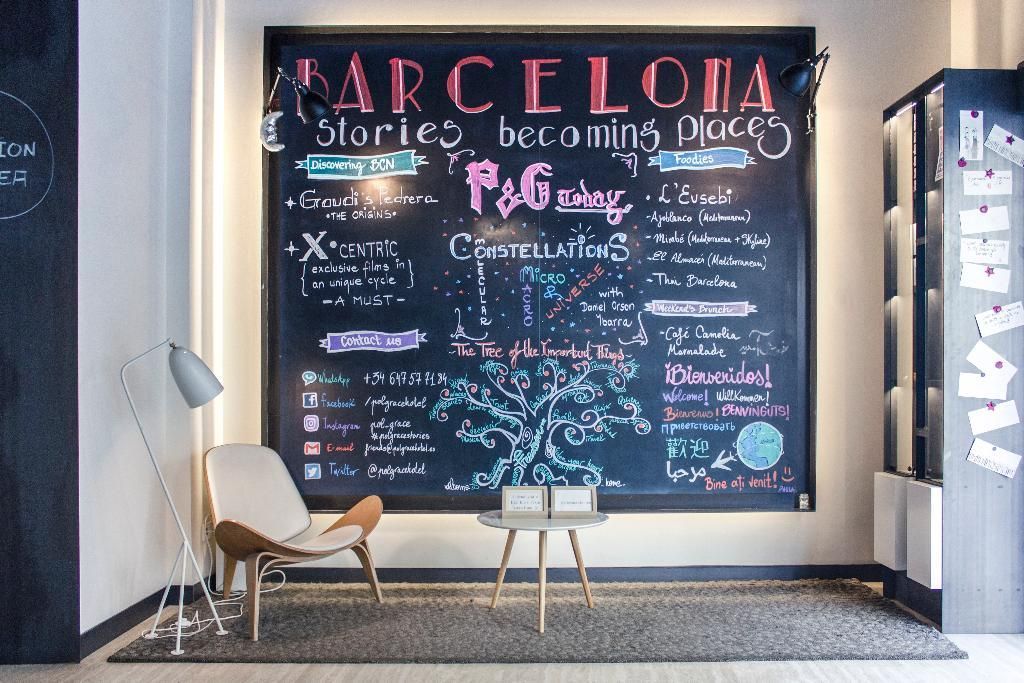 BARCELONA
stories becoming places
Discovering BCN
Gaudi's Pedrera
• THE ORIGINS •
X • CENTRIC
{exclusive films in
an unique cycle}
- A MUST -
Contact us
WhatsApp +34 647 57 71 84
Facebook /polgracehotel
Instagram pol_grace
#polgracestories
E-mail friends@polgracehotel.es
Twitter @polgracehotel
P&G Today
CONSTELLATIONS
MOLECULAR
MICRO
&
MACRO
UNIVERSE
with
Daniel Orson
Ybarra
The Tree of the Important Things
Travel
home
Foodies
• L'Eusebi
- Ajoblanco (Mediterranean)
- Mirabé (Mediterranean + Skyline)
- El Almacén (Mediterranean)
- Thai Barcelona
Weekend's Brunch
- Café Camelia
Marmalade
¡Bienvenidos!
Welcome! Willkommen!
Bienvenue! BENVINGUTS!
приветствовать
歡迎
مرحبا
Bine ați venit!
ION